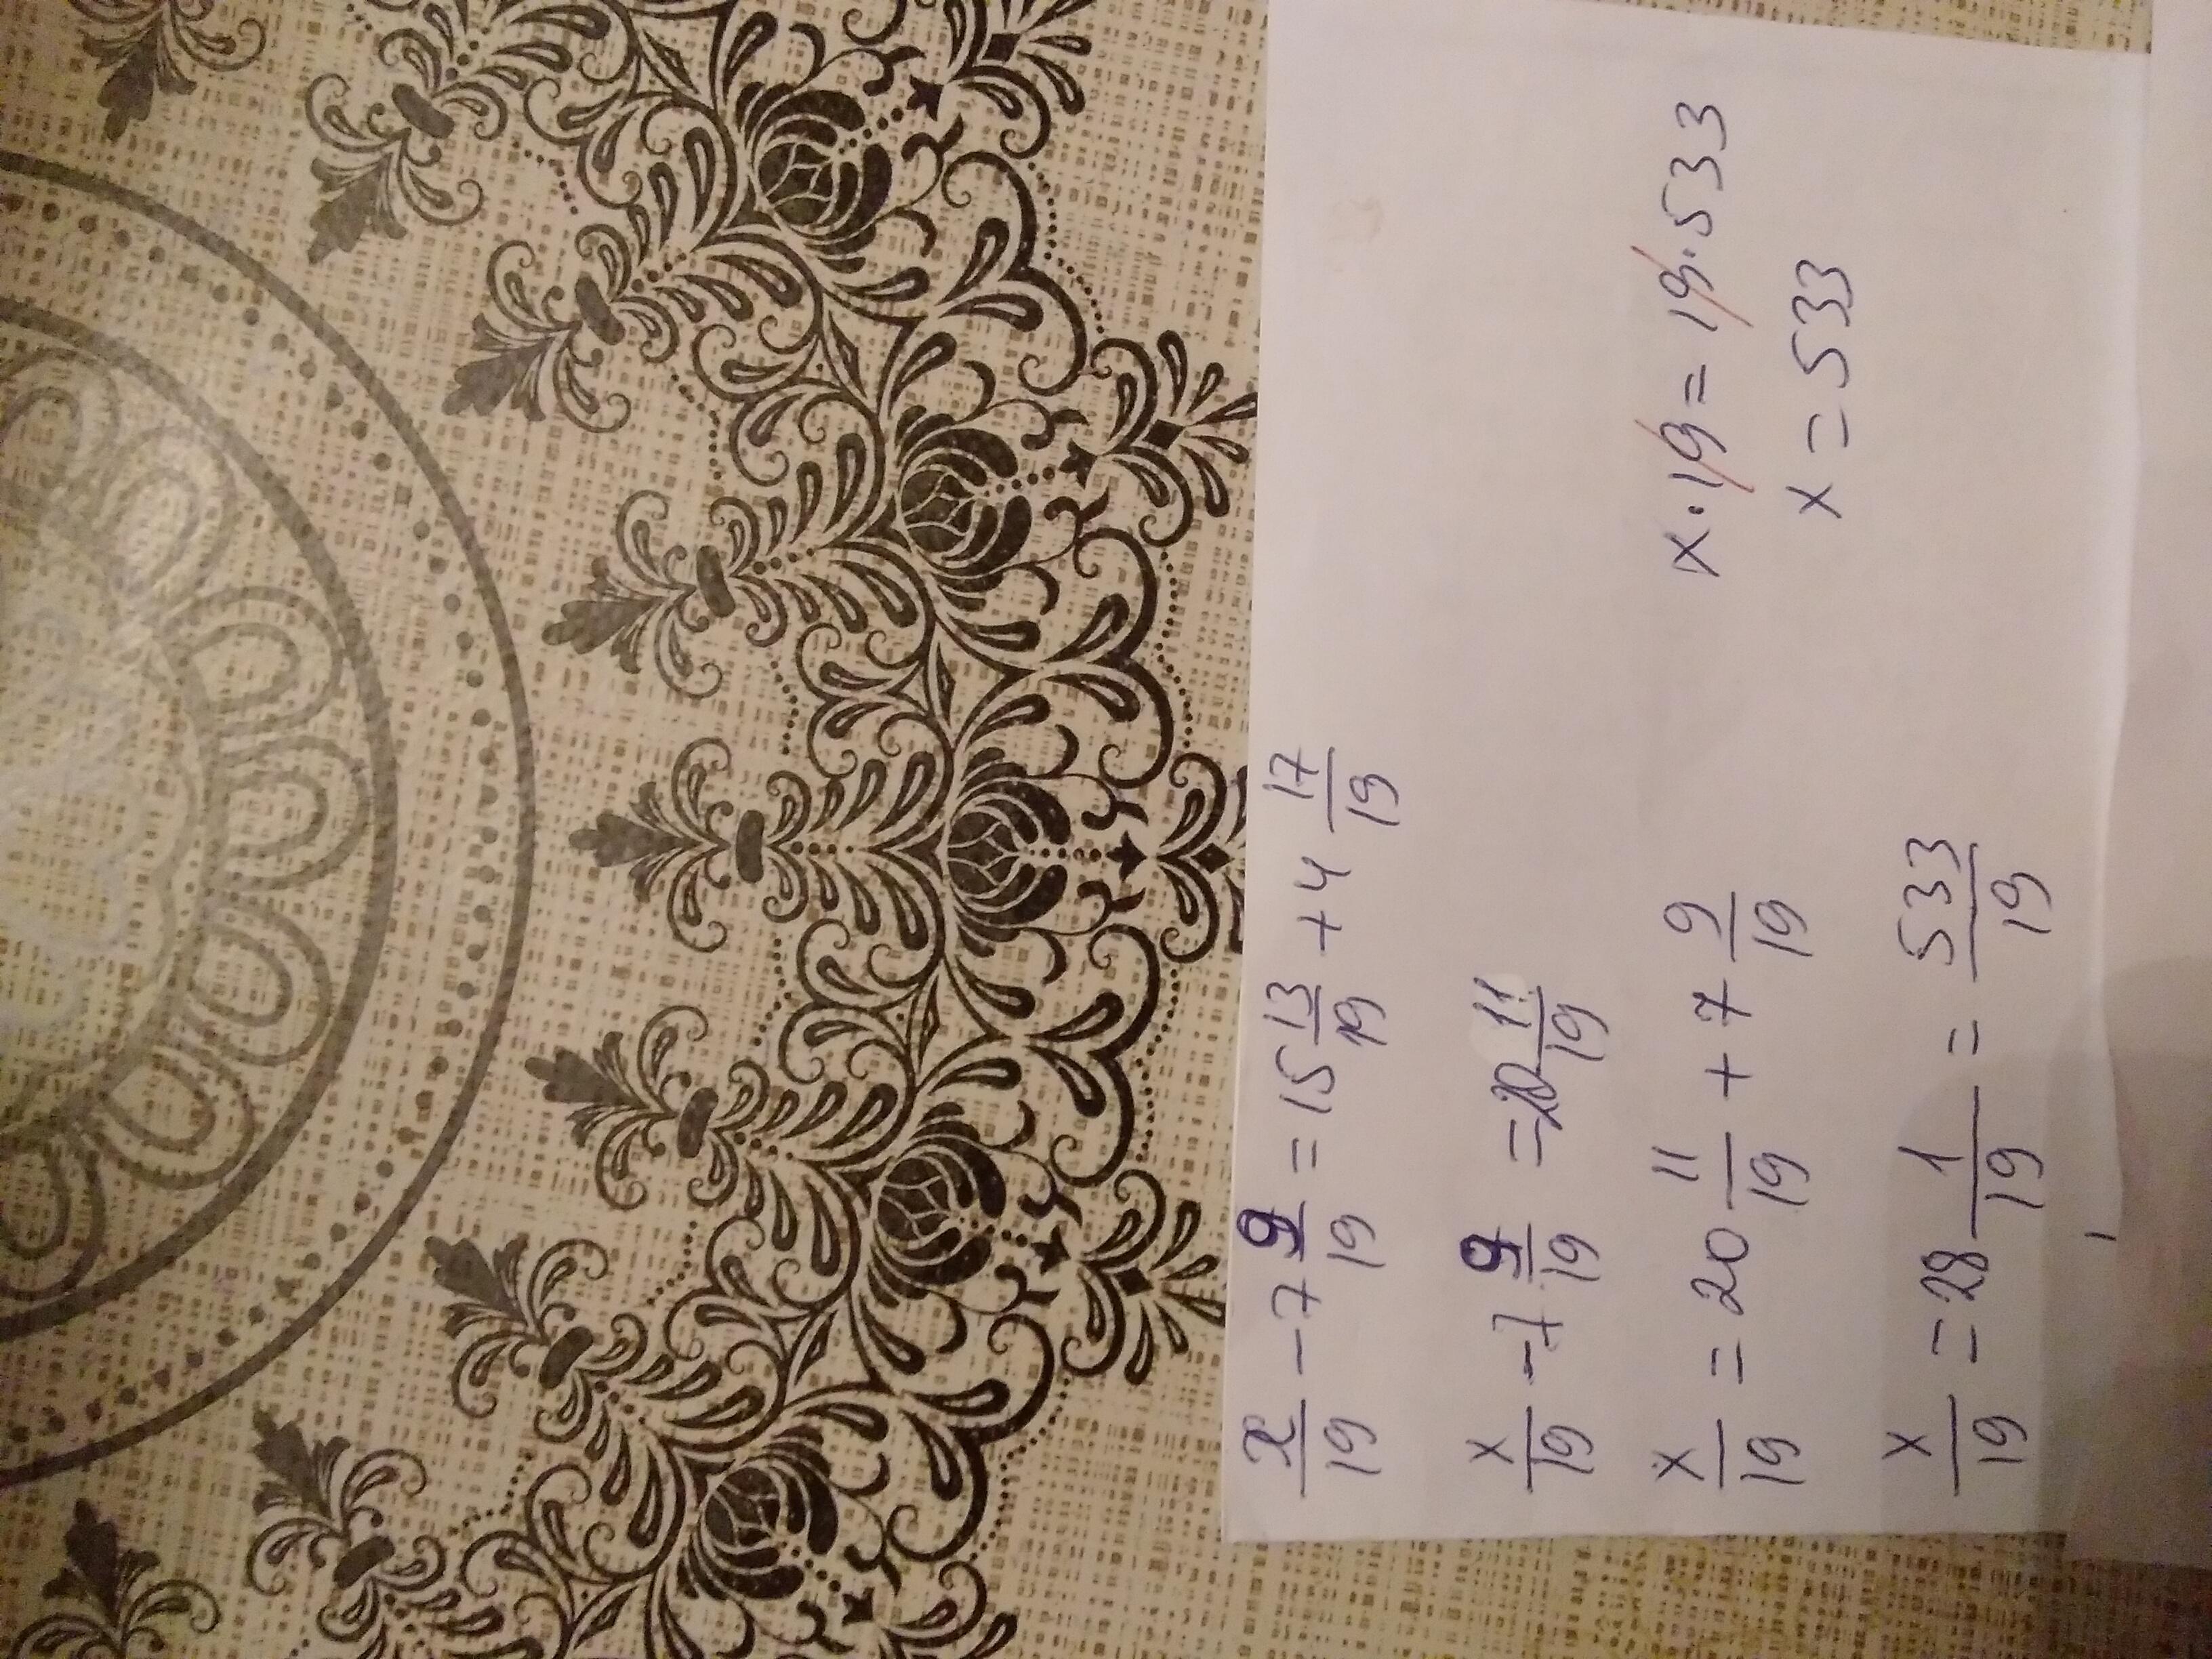 x/19 - 7 9/19 = 15 13/19 + 4 17/19
x/19 - 7 9/19 = 20 11/19
x/19 = 20 11/19 + 7 9/19
x/19 = 28 1/19 = 533/19
x · 19 = 19 · 533
x = 533